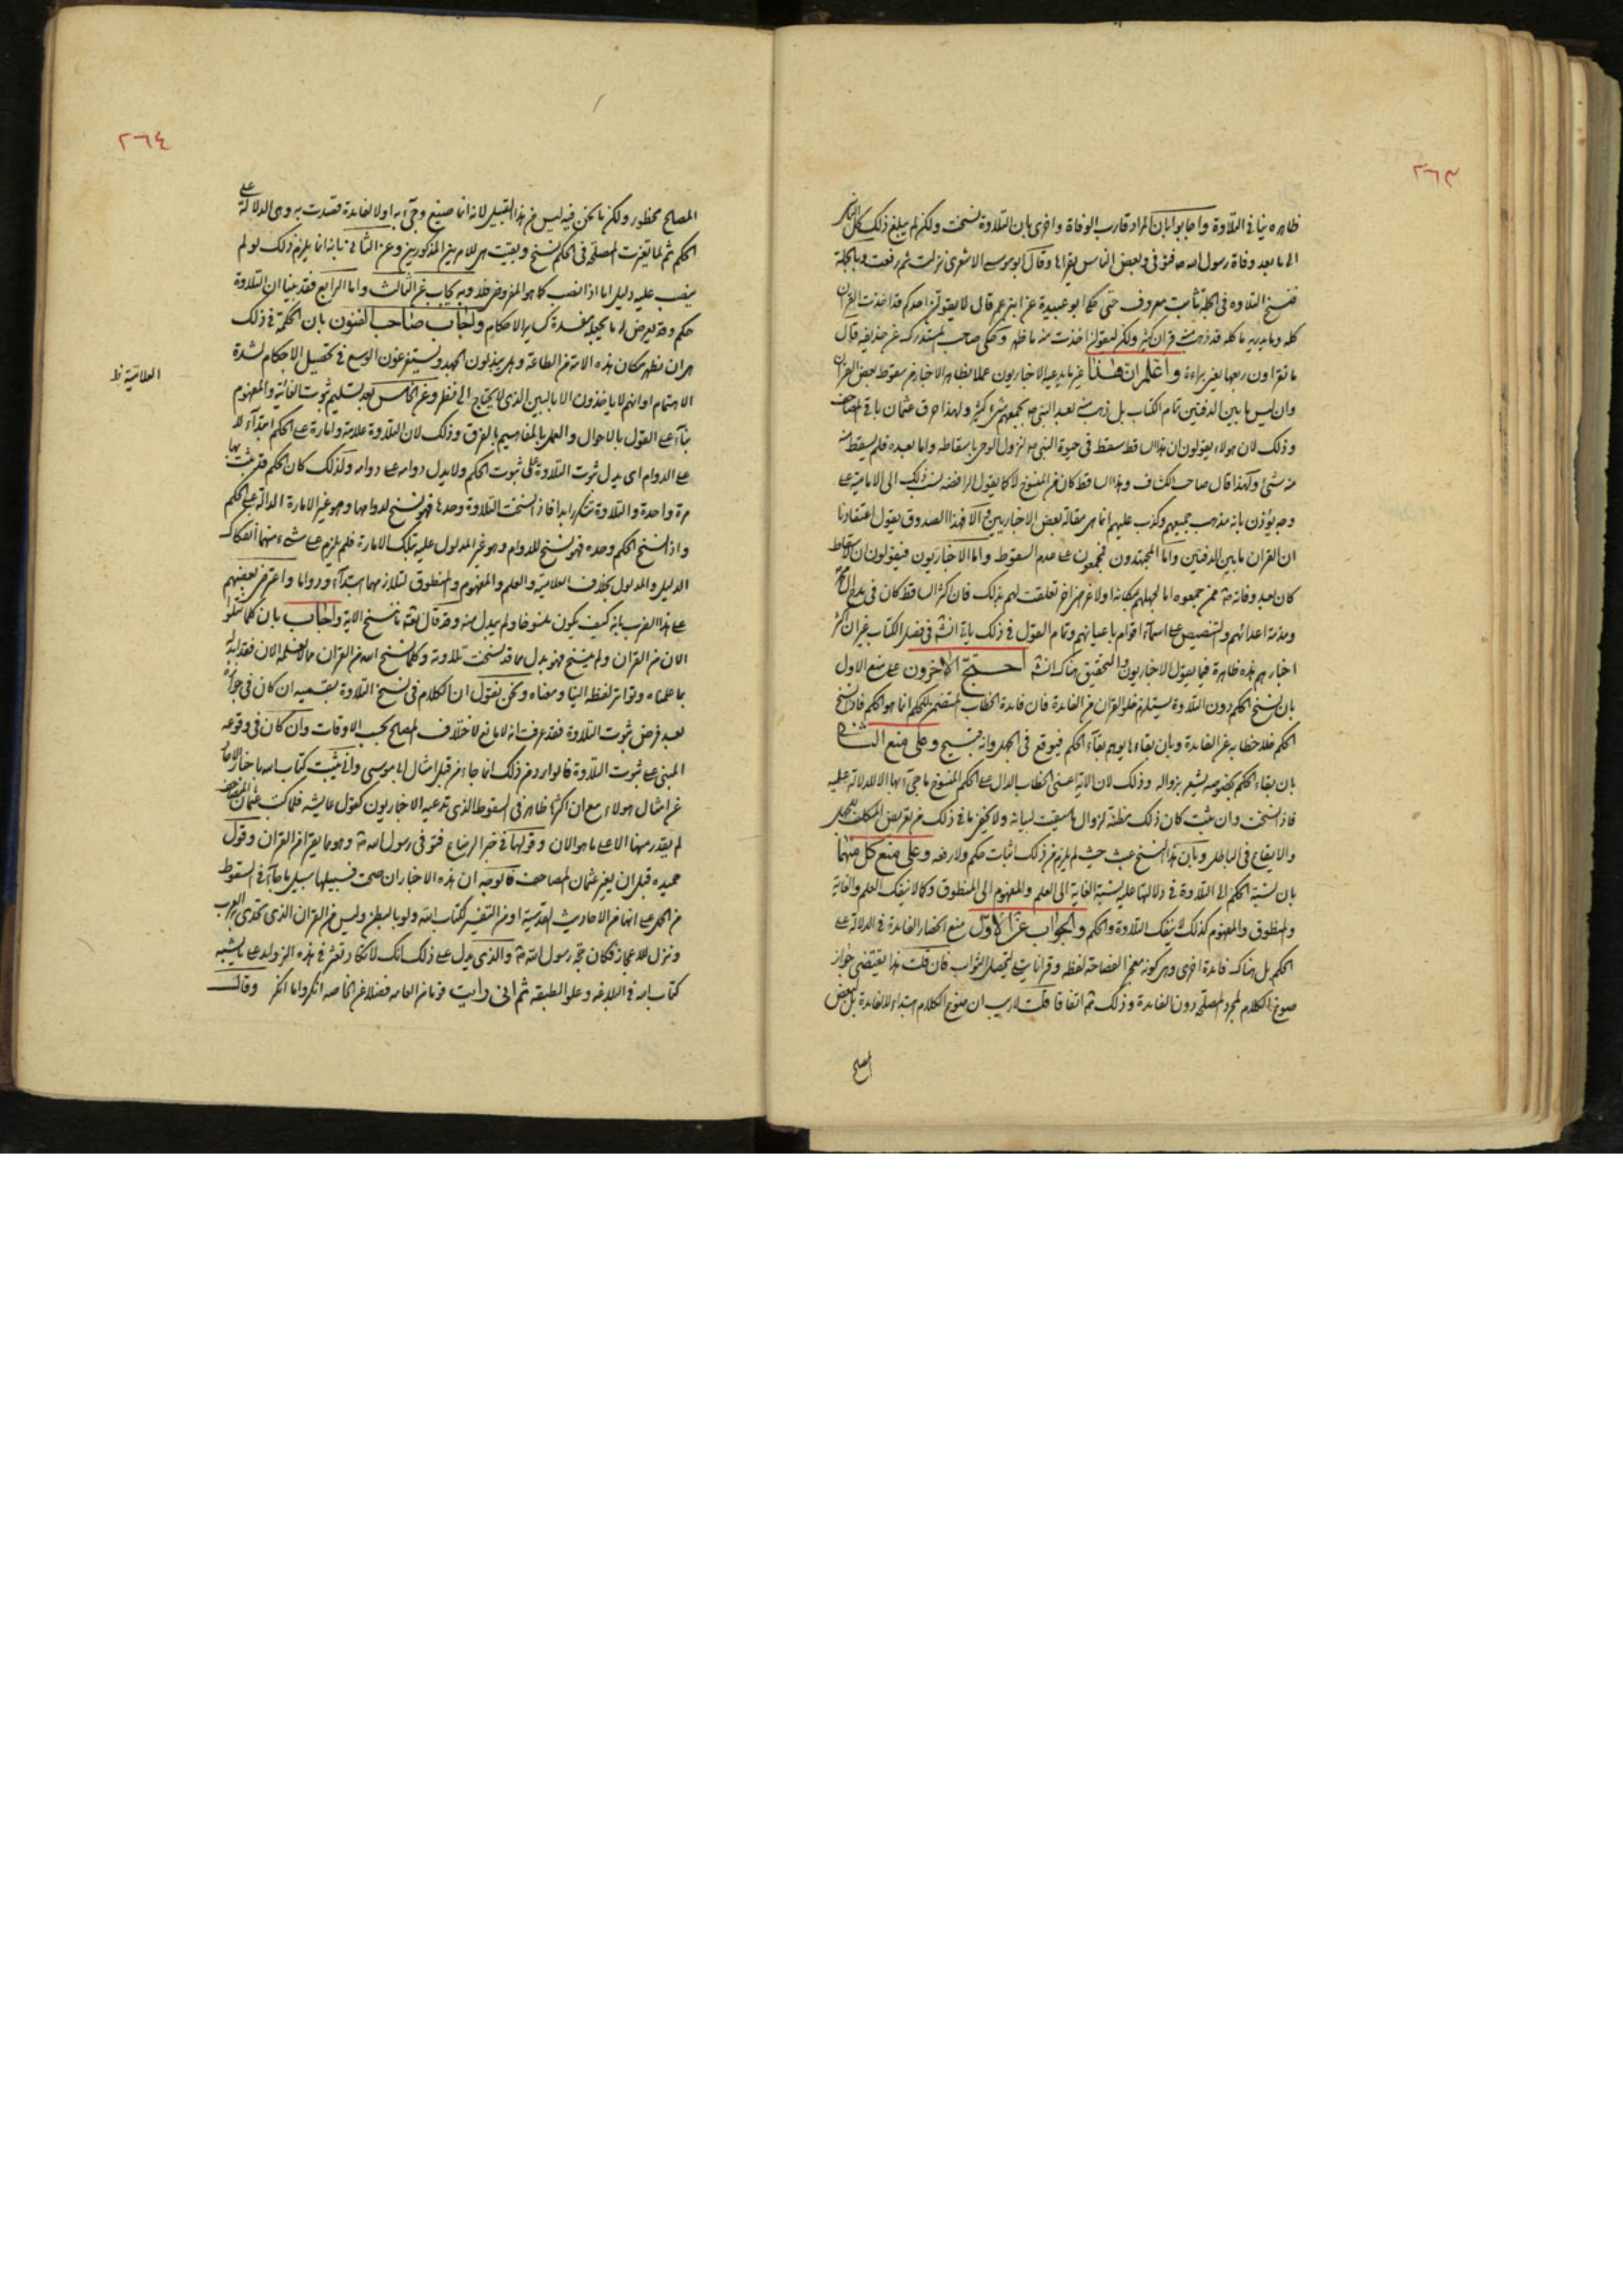 ٢٦٣
ظاهره ينافي التلاوة واجابوا بان المراد قارب الوفاة واخرى بان التلاوة نسخت ولكن لم يبلغ ذلك كل الناس
الا بعد وفاة رسول الله ص فتوفى وبعض الناس يقراها وقال ابو موسى الاشعرى نزلت ثم رفعت وبالجملة
فنسخ التلاوه في الجملة ثابت معروف حتى حكى ابو عبيدة عن ابن عمر قال لا يقولن احدكم قد اخذت القران
كله وما يدريه ما كله قد ذهب منه قران كثير ولكن ليقولن اخذت منه ما ظهر وحكى صاحب المستدرك عن حذيفه قال
ما تقراون ربعها يعني براءة واعلم ان هذا غير ما يدعيه الاخباريون عملا بظاهر الاخبار من سقوط بعض القران
وان ليس ما بين الدفتين تمام الكتاب بل ذهب منه بعد النبي ص بجمعهم شيء كثير ولهذا حرق عثمان باقي المصاحف
وذلك لان هولاء يقولون ان هذا الساقط سقط في حيوة النبي ص لنزول الوحي باسقاطه واما بعده فلم يسقط منه
منه شئ ولهذا قال صاحب الكشاف وهذا الساقط كان من المنسوخ لا كما يقول الرافضه نسب ذلك الى الامامية على
وجه يؤذن بانه مذهب جميعهم وكذب عليهم انما هي مقالة بعض الاخباريين والا فهذا الصدوق يقول اعتقادنا
ان القران ما بين الدفتين واما المجتهدون فمجمعون على عدم السقوط واما الاخباريون فيقولون ان الاسقاط
كان بعد وفاته ص ممن جمعوه اما لجهلهم بمكانه او لاغراض اخر تعلقت لهم بذلك فان اكثر الساقط كان في مدح ال محمد
ومذمة اعدائهم والتنصيص على اسماء اقوام باعيانهم وتمام القول في ذلك ياتي انشه في فصل الكتاب غير ان اكثر
اخبارهم هذه ظاهرة فيما يقول الاخباريون والتحقيق هناك انشه احتج الاخرون على منع الاول
بان نسخ الحكم دون التلاوة يستلزم خلو القران من الفايدة فان فايدة الخطاب المتضمن للحكم انما هو الحكم فاذا نسخ
الحكم فلا خطابه عن الفايدة وبان بقاءها يوهم بقاء الحكم فيوقع في الجهل وانه قبيح وعلى منع الثاني
بان بقاء الحكم بخصوصه يشعر بزواله وذلك لان الاية اعنى الخطاب الدال على الحكم المنسوخ ما جئ بها الا للدلالة عليه
فاذا نسخت وان بقيت كان ذلك مظنة لزوال ما سيقت لبيانه ولا يخفى ما في ذلك من تعريض المكلف للجهل
والايقاع في الباطل وبان هذا النسخ عبث حيث لم يلزم من ذلك اثبات حكم ولا رفعه وعلى منع كل منهما
بان نسبة الحكم الى التلاوة في دلالتها عليه نسبة الغاية الى العلم والمفهوم الى المنطوق وكما لا ينفك العلم والغاية
والمنطوق والمفهوم كذلك لا ينفك التلاوة والحكم والجواب عن الاول منع انحصار الفايدة في الدلالة على
الحكم بل هناك فائدة اخرى وهي كونه معجزا لفصاحة لفظه وقرانا يتلى لتحصيل الثواب فان قلت هذا يقتضي جواز
صوغ الكلام لمجرد المصلحة دون الفايدة وذلك مما اتفاقا قلت لا ريب ان صوغ الكلام ابتداء لا لفايدة بل لبعض
المصالح
٢٦٤
المصالح محظور ولكن ما نحن فيه ليس من هذا القبيل لانه انما صيغ وجئ به اولا لفايدة قصدت به وهي الدلالة على
الحكم ثم لما تغيرت المصلحة في الحكم نسخ وبقيت هي للامرين المذكورين وعن الثاني بانه انما يلزم ذلك لو لم
ينصب عليه دليل اما اذا نصب كما هو المفروض فلا وبه يجاب عن الثالث واما الرابع فقد بينا ان التلاوة
حكم وقد يعرض له ما يجعله مفسدة كساير الاحكام واجاب صاحب الفنون بان الحكمة في ذلك
هي ان يظهر مكان هذه الامة من الطاعة وهل يبذلون الجهد ويستفرغون الوسع في تحصيل الاحكام لشدة
الاهتمام او انهم لا ياخذون الا بالبين الذي لا يحتاج الى نظر وعن الخامس بعد تسليم ثبوت الغائية والمفهوم
العلاميّة ظ
بناء على القول بالاحوال والعمل بالمفاهيم بالفرق وذلك لان التلاوة علامة وامارة على الحكم ابتداء لا
على الدوام اى يدل ثبوت التلاوة على ثبوت الحكم ولا يدل دوامه على دوامه ولذلك كان الحكم قد يثبت بها
مرة واحدة والتلاوة تتكرر ابدا فاذا نسخت التلاوة وحدها فهو نسخ لدوامها وهو غير الامارة الدالة على الحكم
واذا نسخ الحكم وحده فهو نسخ للدوام وهو غير المدلول عليه بتلك الامارة فلم يلزم على شئ منهما انفكاك
الدليل والمدلول بخلاف العلامية والعلم والمفهوم والمنطوق لتلازمهما ابتداء ودواما واعترض بعضهم
على هذا الضرب بانه كيف يكون منسوخا ولم يبدل منه وقد قال تعه ما ننسخ الاية واجاب بان كلما نتلو
الان من القران ولم ينسخ فهو بدل مما قد نسخت تلاوته وكلما نسخ الله من القران مما لا نعلمه الان فقد ابدله
بما علمناه وتواتر لفظه الينا ومعناه ونحن نقول ان الكلام في نسخ التلاوة بقسميه ان كان في جوازه
بعد فرض ثبوت التلاوة فقد عرفت انه لا مانع لاختلاف المصالح بحسب الاوقات وان كان في وقوعه
المبني على ثبوت التلاوة فالوارد من ذلك انما جاء من قبل امثال ابى موسى وانى يثبت كتاب الله باخبار الاحاد
عن امثال هولاء مع ان اكثرها ظاهر في السقوط الذي تدعيه الاخباريون كقول عايشه فلما كتب عثمان المصاحف
لم يقدر منها الا على ما هو الان وقولها في خبر الرضاع فتوفى رسول الله ص وهو مما يقرا من القران وقول
حميده قبل ان يغير عثمان المصاحف فالوجه ان هذه الاخبار ان صحت فسبيلها سبيل ما جاء في السقوط
من الحمل على انها من الاحاديث القدسية او من التفسير لكتاب الله ولو بالبطن وليس من القران الذي تحدى به العرب
ونزل للاعجاز فكان حجة رسول الله ص والذى يدل على ذلك انك لا تكاد تعثر في هذه الزوايد على ما يشبه
كتاب الله في البلاغه وعلو الطبقه ثم انى رايت قوما من العامه فضلا عن الخاصه انكروا ما انكر وقال